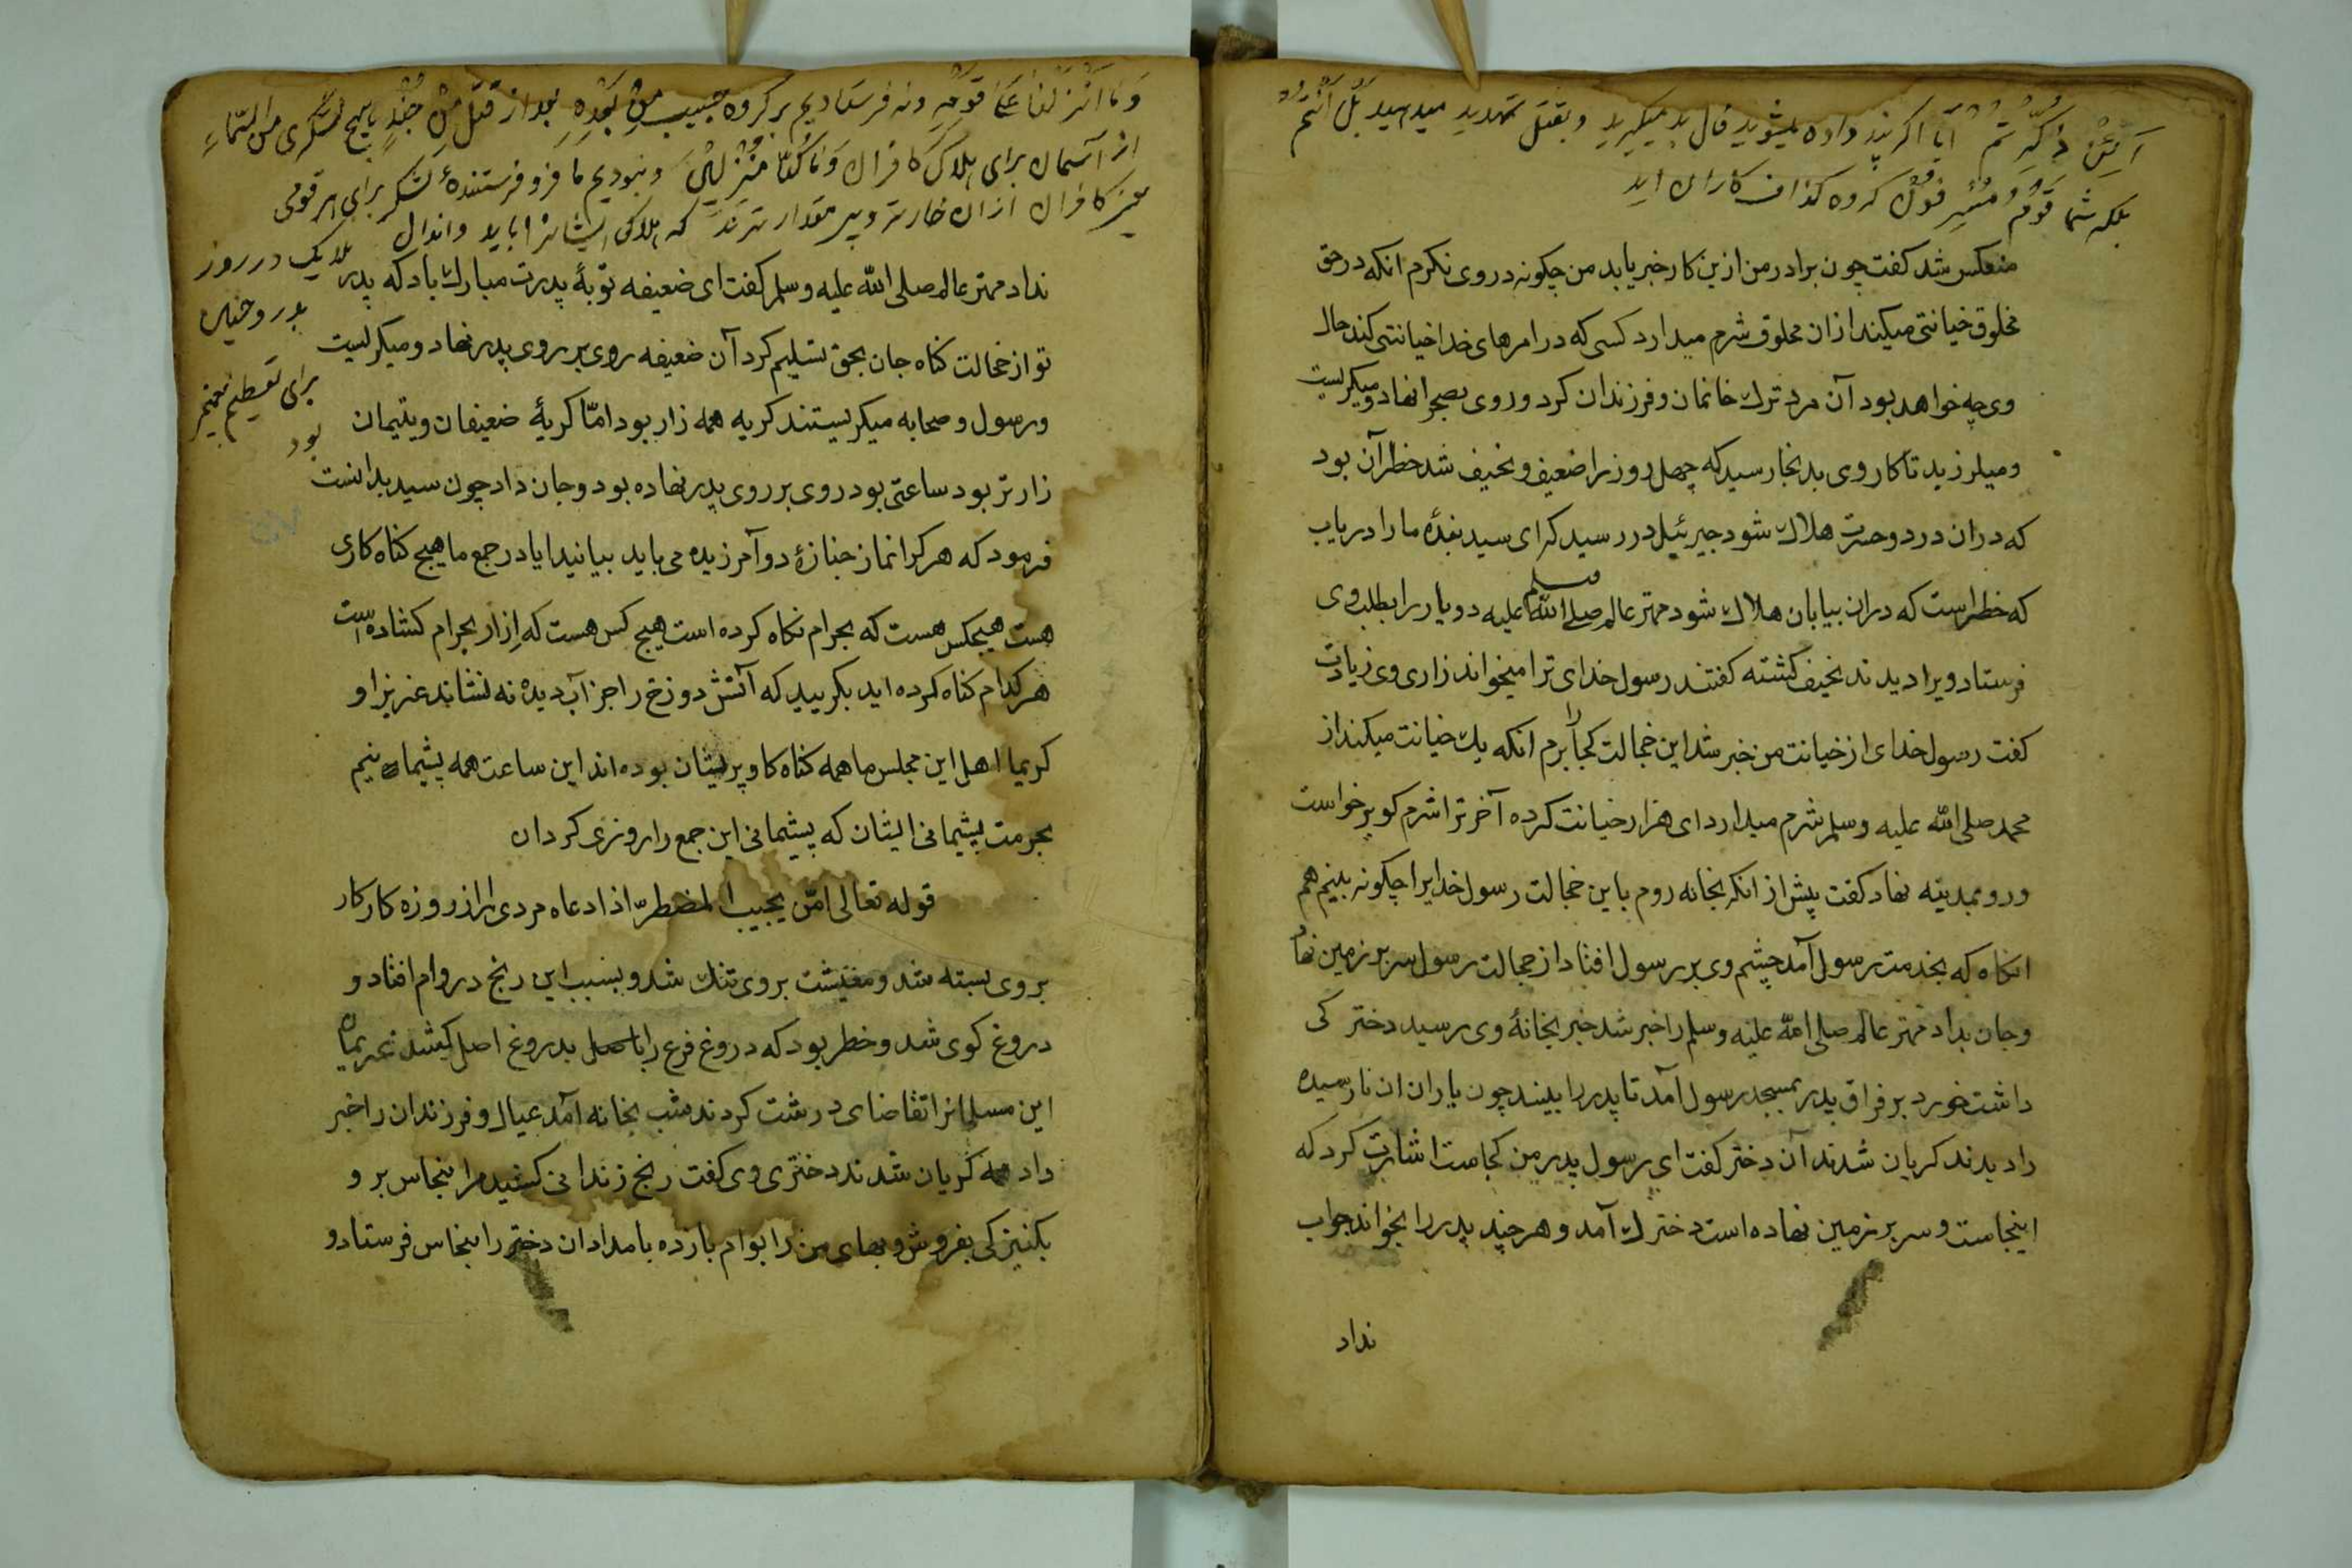 اَئِنْ ذُكِّرْتُمْ آیا اگر پند داده میشوید فال بد میگیرید و بقتل تهدید میدهید بَلْ اَنْتُمْ
بلکه شما قَوْمٌ مُسْرِفُوْنَ گروه گذاف کاران اید
منعکس شد کفت چون برادر من ازین کار خبر یابد من چکونه در وی نکرم انکه در حق
مخلوق خیانتی میکند ازان مخلوق شرم میدارد کسی که در امرهای خدا خیانتی کند حال
وی چه خواهد بود آن مرد ترك خانمان و فرزندان کرد و روی بصحرا نهاد و میکریست
و میلرزید تا کار وی بدنجا رسید که چهل روز را ضعیف و نحیف شد خطر آن بود
که دران درد و حسرت هلاك شود جبرئیل در رسید که ای سید بندهٔ ما را دریاب
که خطر است که دران بیابان هلاك شود مهتر عالم صلی الله علیه وسلم دو یار را بطلب وی
فرستاد ویرا دیدند نحیف کشته کفتند رسول خدای ترا میخواند زاری وی زیادت
کفت رسول خدای از خیانت من خبر شد این خجالت را کجا برم انکه یك خیانت میکند از
محمد صلی الله علیه وسلم شرم میدارد ای هزار خیانت کرده آخر ترا شرم کو برخواست
و رو بمدینه نهاد کفت پیش از انکه بخانه روم باین خجالت رسول خدایرا چکونه بینم هم
انکاه که بخدمت رسول آمد چشم وی بر رسول افتاد از خجالت رسول سر بر زمین نهاد
و جان بداد مهتر عالم صلی الله علیه وسلم را خبر شد خبر بخانهٔ وی رسید دختر کی
داشت خورد بر فراق پدر بمسجد رسول آمد تا پدر را بیند چون یاران ان نارسیده
را دیدند کریان شدند آن دختر کفت ای رسول پدر من کجاست اشارت کرد که
اینجاست و سر بر زمین نهاده است دخترك آمد و هر چند پدر را بخواند جواب
نداد
وَمَا اَنْزَلْنَا عَلٰی قَوْمِهٖ ونه فرستادیم بر گروه حبیب مِنْ بَعْدِهٖ بعد از قتل مِنْ جُنْدٍ هیچ لشکری مِنَ السَّمَاءِ
از آسمان برای هلاک کافران وَمَا كُنَّا مُنْزِلِیْنَ و نبودیم ما فرو فرستندهٔ لشکر برای هر قومی
کافران ازان خارتر و بی مقدارترند که هلاکی ایشانرا باید و انزال
ملایک در روز
بدر و حنین
برای تعظیم پیغمبر
بود
نداد مهتر عالم صلی الله علیه وسلم کفت ای ضعیفه توبهٔ پدرت مبارك باد که پدر
تو از خجالت کناه جان بحق تسلیم کرد آن ضعیفه روی بر روی پدر نهاد و میکریست
و رسول و صحابه میکریستند کریه همه زار بود امّا کریهٔ ضعیفان و یتیمان
زارتر بود ساعتی بود روی بر روی پدر نهاده بود و جان داد چون سید بدانست
فرمود که هر کرا نماز جنازهٔ دو آمرزیده می باید بیانید ایا در جمع ما هیچ کناه کاری
هست هیچکس هست که بحرام نکاه کرده است هیچ کس هست که اِزار بحرام کشاده است
هر کدام کناه کرده اید بکریید که آتش دوزخ را جز آب دیده نه نشاند عزیزا و
کریما اهل این مجلس ما همه کناه کار و پریشان بوده اند این ساعت همه پشیمانیم
بحرمت پشیمانی ایشان که پشیمانی این جمع را روزی کردان
قوله تعالی امّن یجیب المضطرّ اذا دعاه مردی را از روزه کار کار
بر وی بسته شد و معیشت بر وی تنك شد و بسبب این رنج در وام افتاد و
دروغ کوی شد و خطر بود که دروغ فرع را بدروغ اصل کشد غریمان
این مسلمانرا تقاضای درشت کردند شب بخانه آمد عیال و فرزندان را خبر
داد همه کریان شدند دختری وی کفت رنج زندانی کشید مرا بنخاس بر و
بکنیزکی بفروش و بهای من را بوام بازده بامدادان دختر را بنخاس فرستاد و